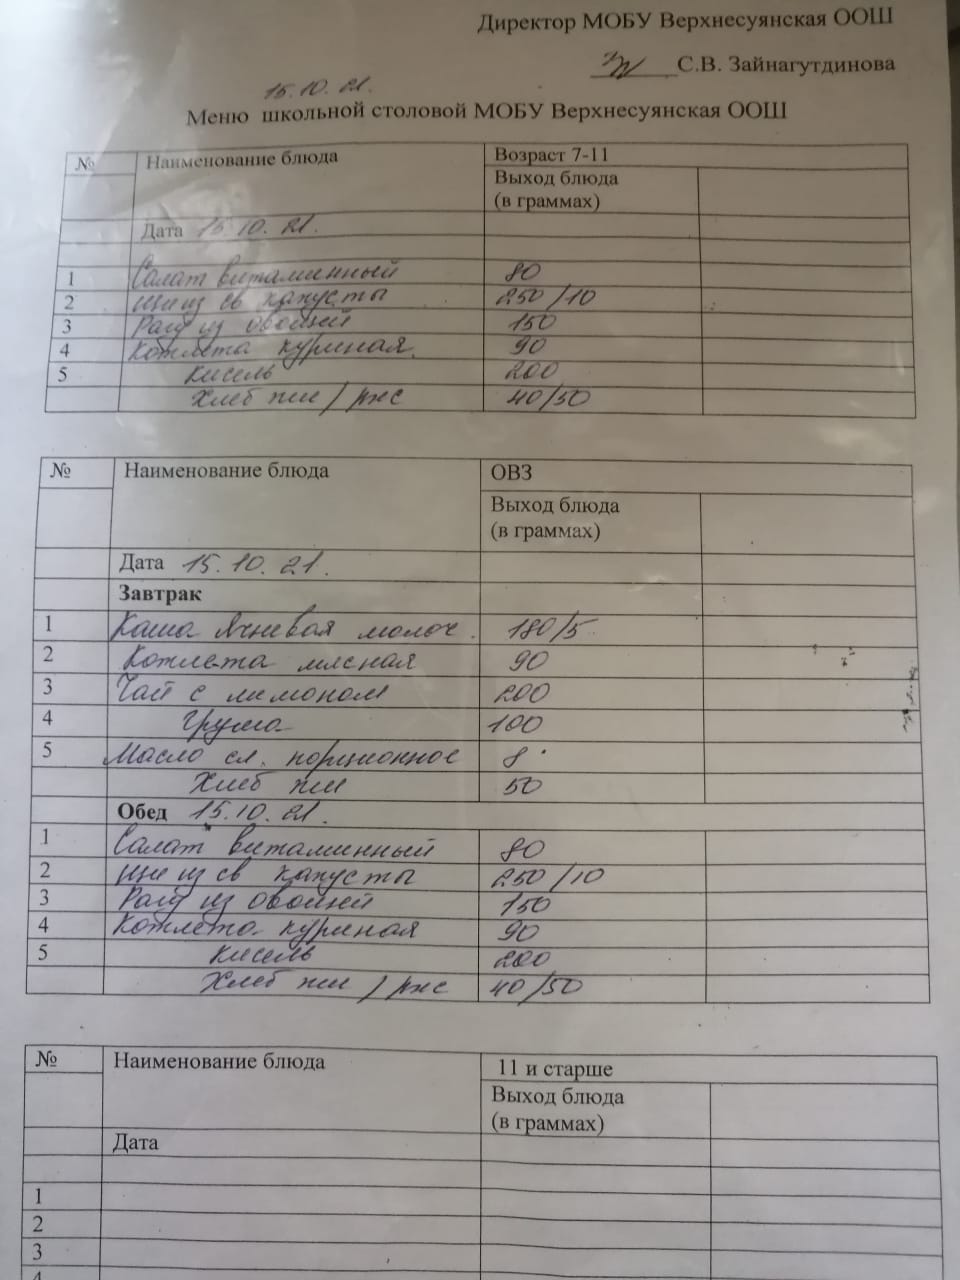 Директор МОБУ Верхнесуянская ООШ
С.В. Зайнагутдинова
15.10.21.
Меню школьной столовой МОБУ Верхнесуянская ООШ
№ Наименование блюда Возраст 7-11
Выход блюда
(в граммах)
Дата 15.10.21.
1 Салат витаминный 80
2 Щи из св капусты 250/10
3 Рагу из овощей 150
4 Котлета куриная. 90
5 Кисель 200
Хлеб пш / рж 40/50
№ Наименование блюда ОВЗ
Выход блюда
(в граммах)
Дата 15.10.21.
Завтрак
1 Каша Ячневая молоч. 180/5
2 Котлета мясная 90
3 Чай с лимоном 200
4 Груша 100
5 Масло сл. порционное 8
Хлеб пш 50
Обед 15.10.21.
1 Салат витаминный 80
2 Щи из св капусты 250/10
3 Рагу из овощей 150
4 Котлета куриная 90
5 Кисель 200
Хлеб пш / рж 40/50
№ Наименование блюда 11 и старше
Выход блюда
(в граммах)
Дата
1
2
3
4